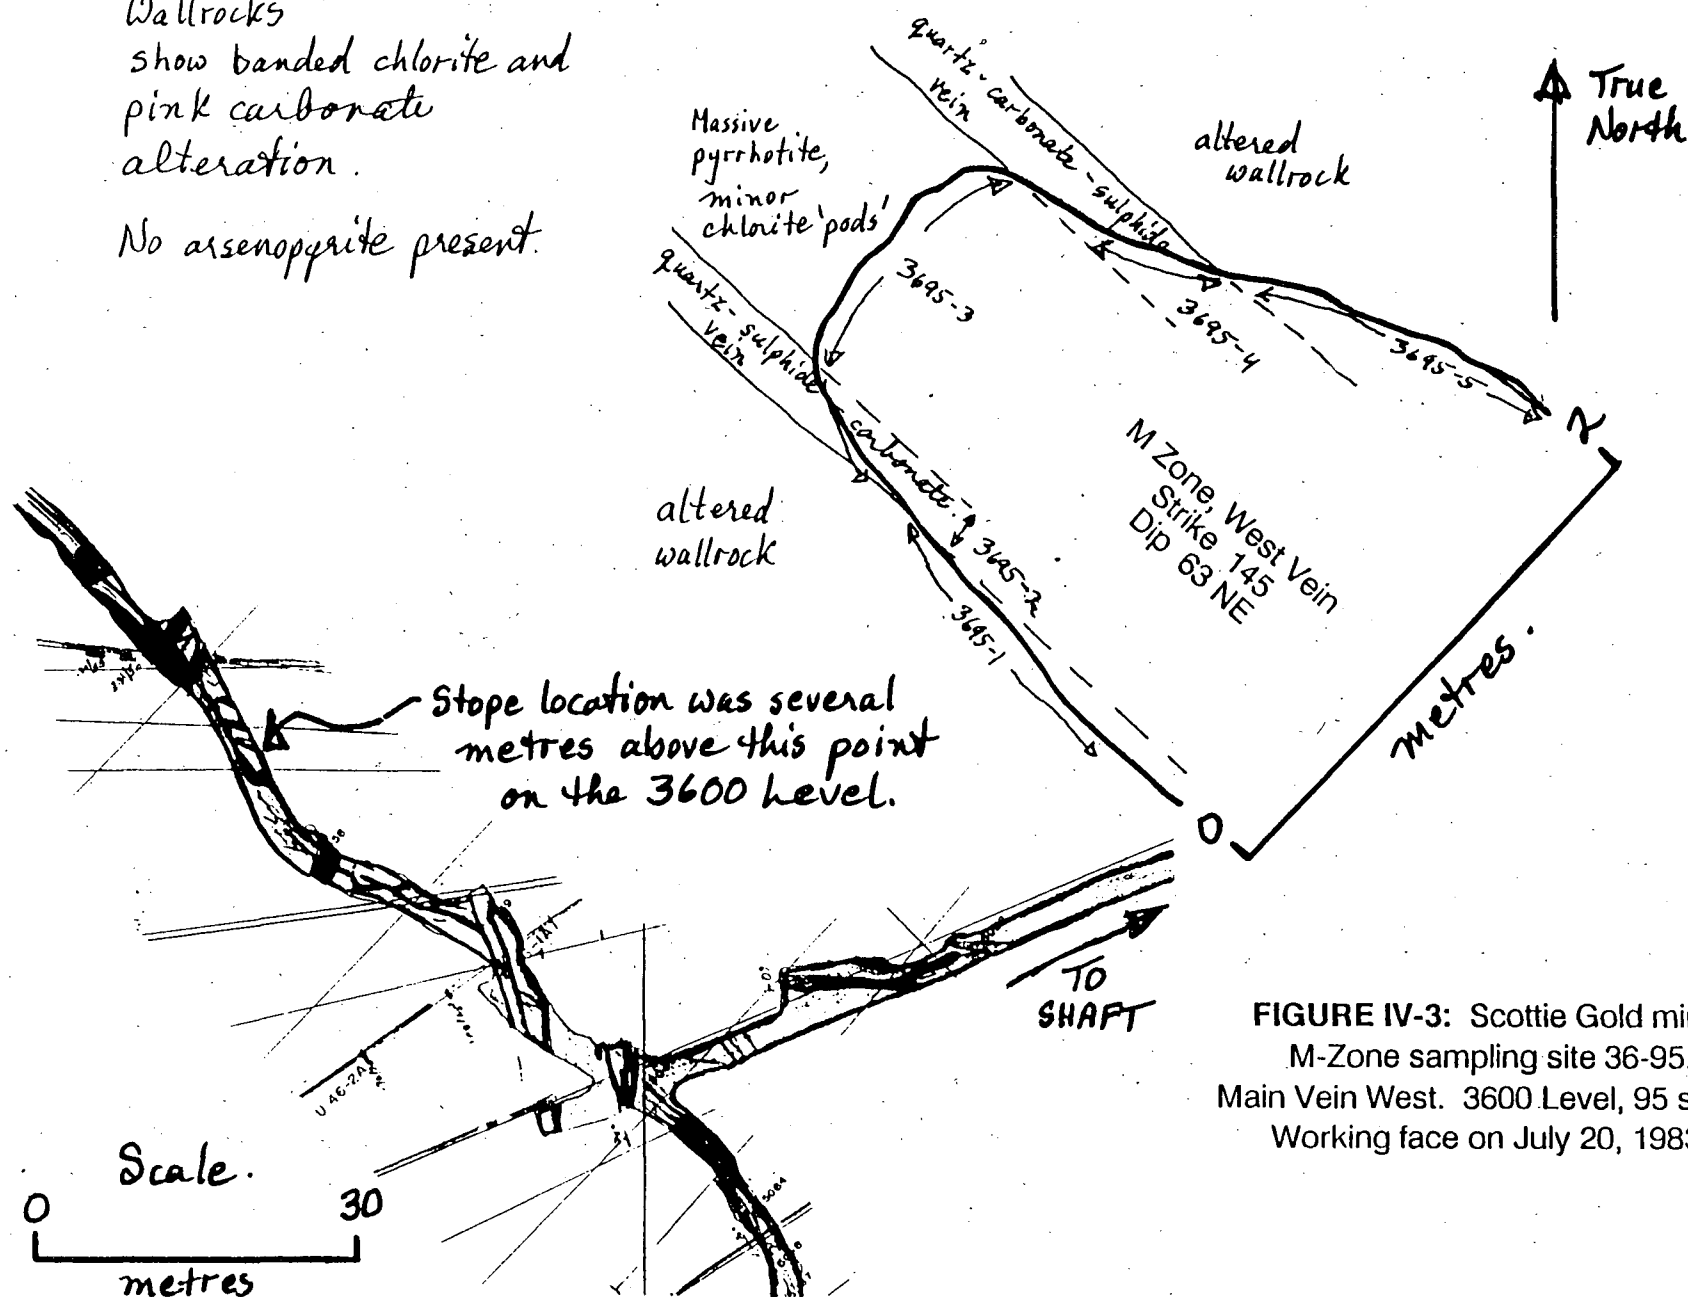 Wallrocks
show banded chlorite and
pink carbonate
alteration.
No arsenopyrite present.
Massive
pyrrhotite,
minor
chlorite 'pods'
quartz-carbonate-sulphide
vein
altered
wallrock
True
North
quartz-sulphide
vein
carbonate.
3695-3
3695-4
3695-5
3695-2
3695-1
altered
wallrock
M Zone, West Vein
Strike 145
Dip 63 NE
2
metres.
0
Stope location was several
metres above this point
on the 3600 Level.
TO
SHAFT
U 46-2A
Scale.
0 30
metres
FIGURE IV-3: Scottie Gold
M-Zone sampling site 36-95
Main Vein West. 3600 Level, 95
Working face on July 20,